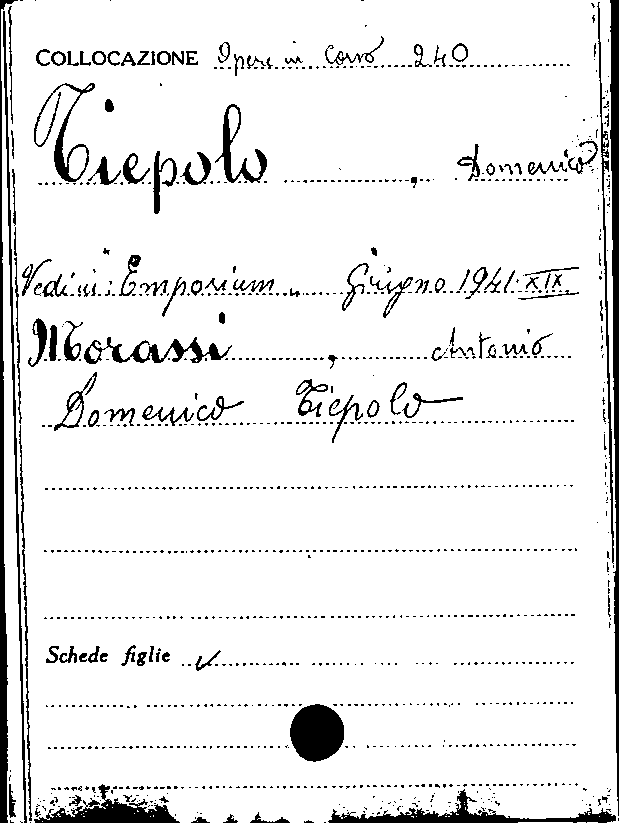 COLLOCAZIONE Opere in Corso 240
Tiepolo, Domenico
Vedi in: "Emporium" Giugno 1941·XIX
Morassi, Antonio
Domenico Tiepolo
Schede figlie ✓